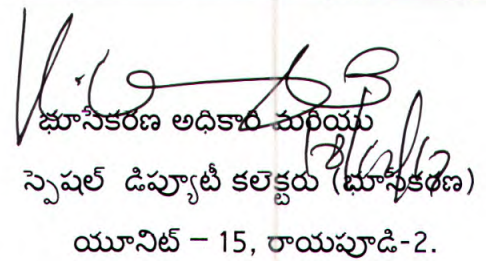 భూసేకరణ అధికారి మరియు
స్పెషల్ డిప్యూటీ కలెక్టరు (భూసేకరణ)
యూనిట్ – 15, రాయపూడి-2.